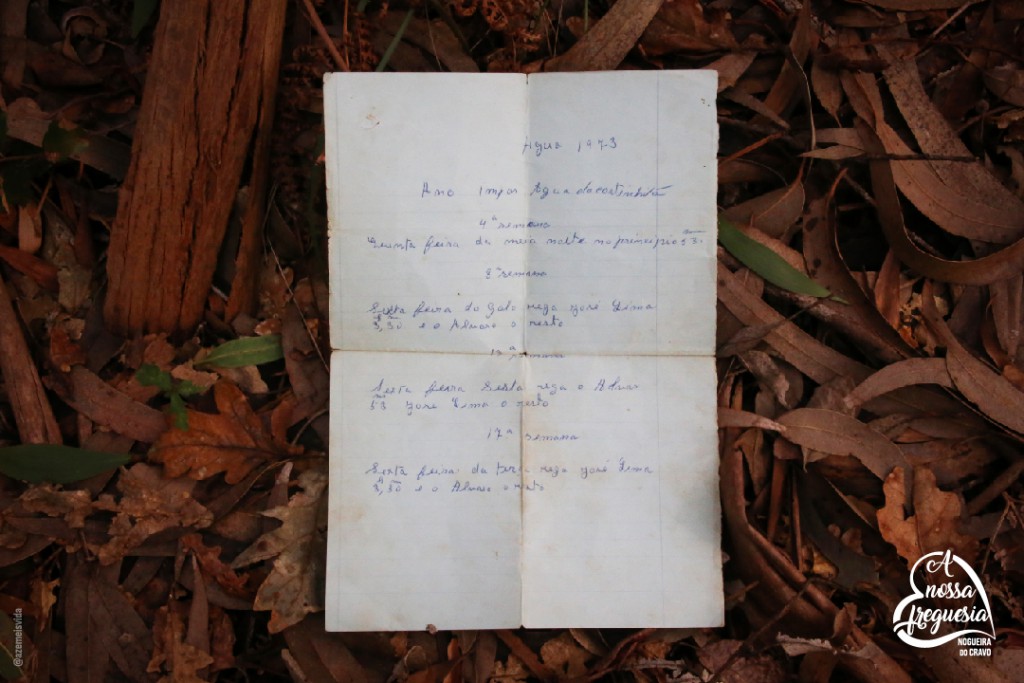 Agua 1973
Ano Impar Agua da cortinha
4ª semana
Quinta feira da meia noite no principio
8ª semana
Sexta feira do Galo rega José Lima
3,30 e o Alvaro o resto
13ª semana
Sexta feira Sesta rega o Alvaro
José Lima o resto
17ª semana
Sexta feira da terça rega José Lima
3,30 e o Alvaro o resto
@azemeisvida
A
nossa
freguesia
NOGUEIRA
DO CRAVO